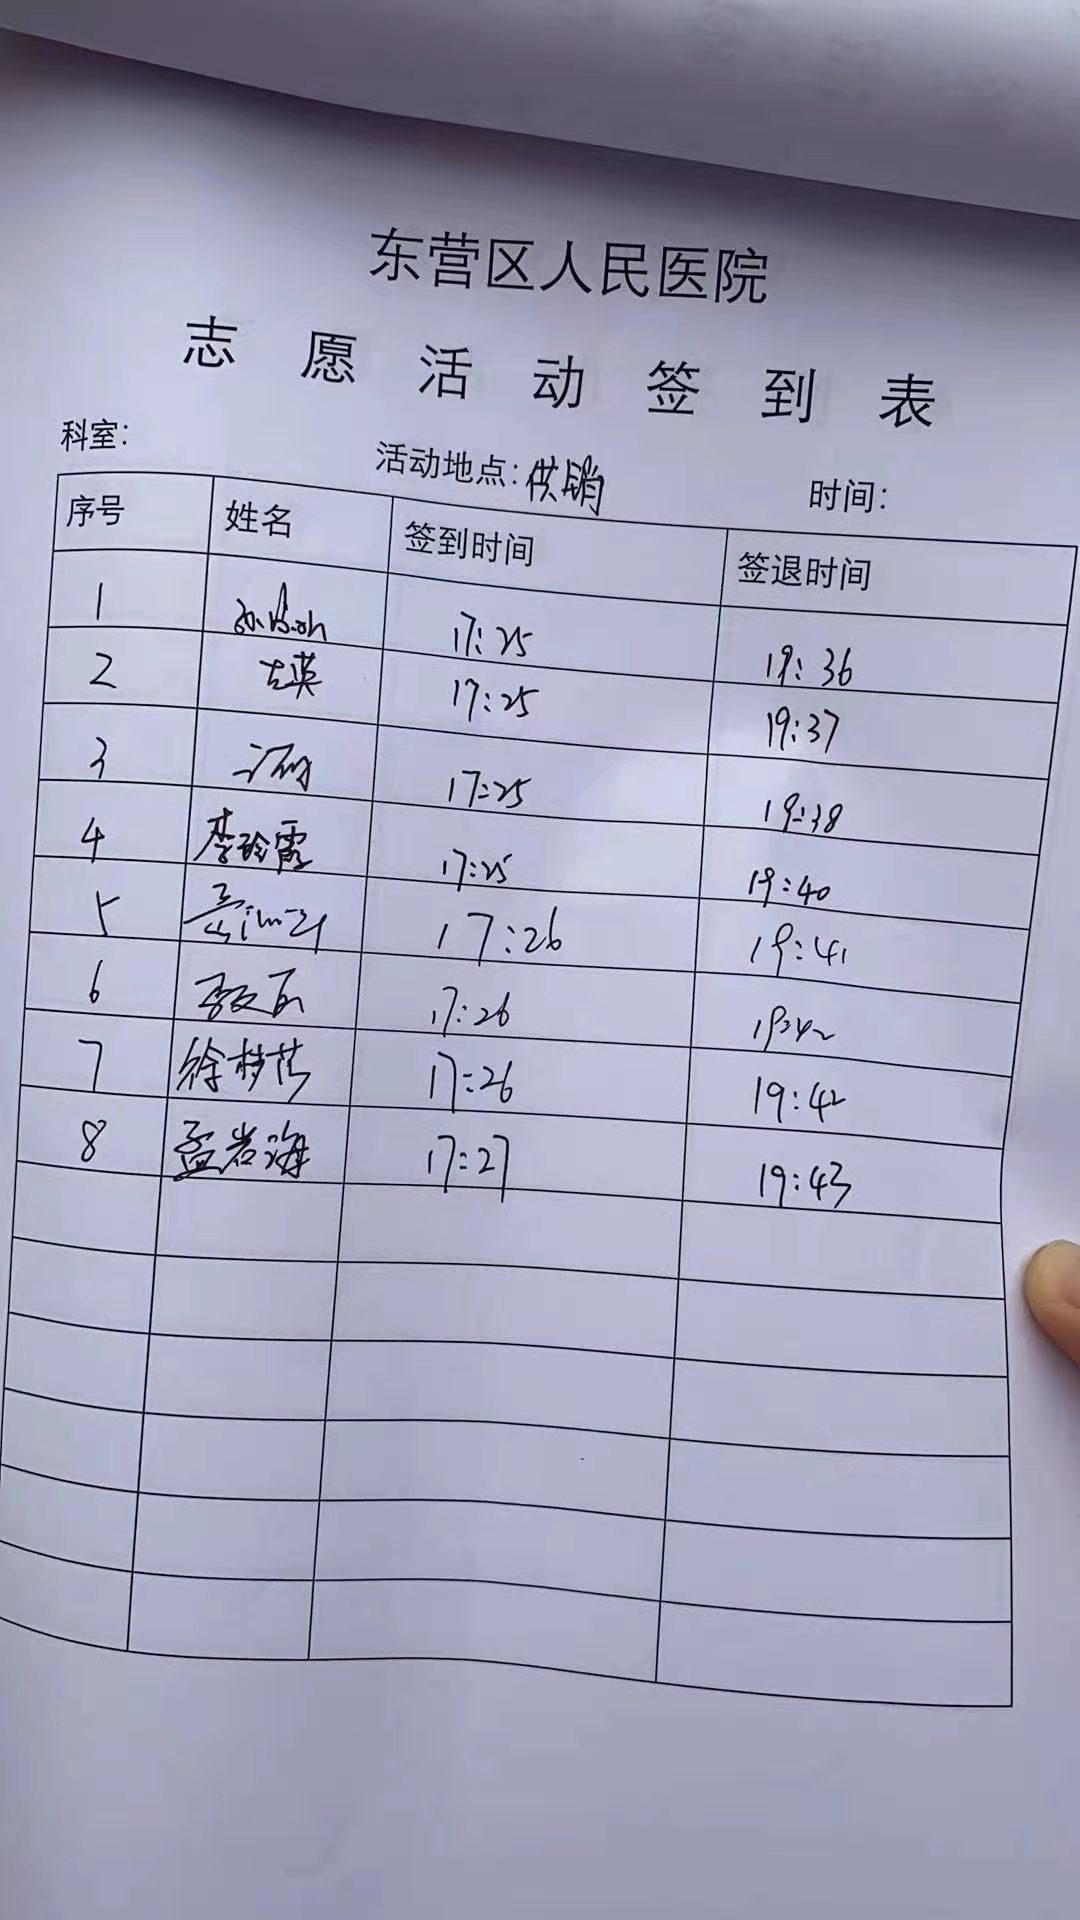 东营区人民医院
志愿活动签到表
科室: 活动地点:供销 时间:
序号 姓名 签到时间 签退时间
1 17:25 19:36
2 古英 17:25 19:37
3 17:25 19:38
4 李玲霞 17:25 19:40
5 17:26 19:41
6 17:26 19:42
7 徐梦莎 17:26 19:42
8 孟岩海 17:27 19:43